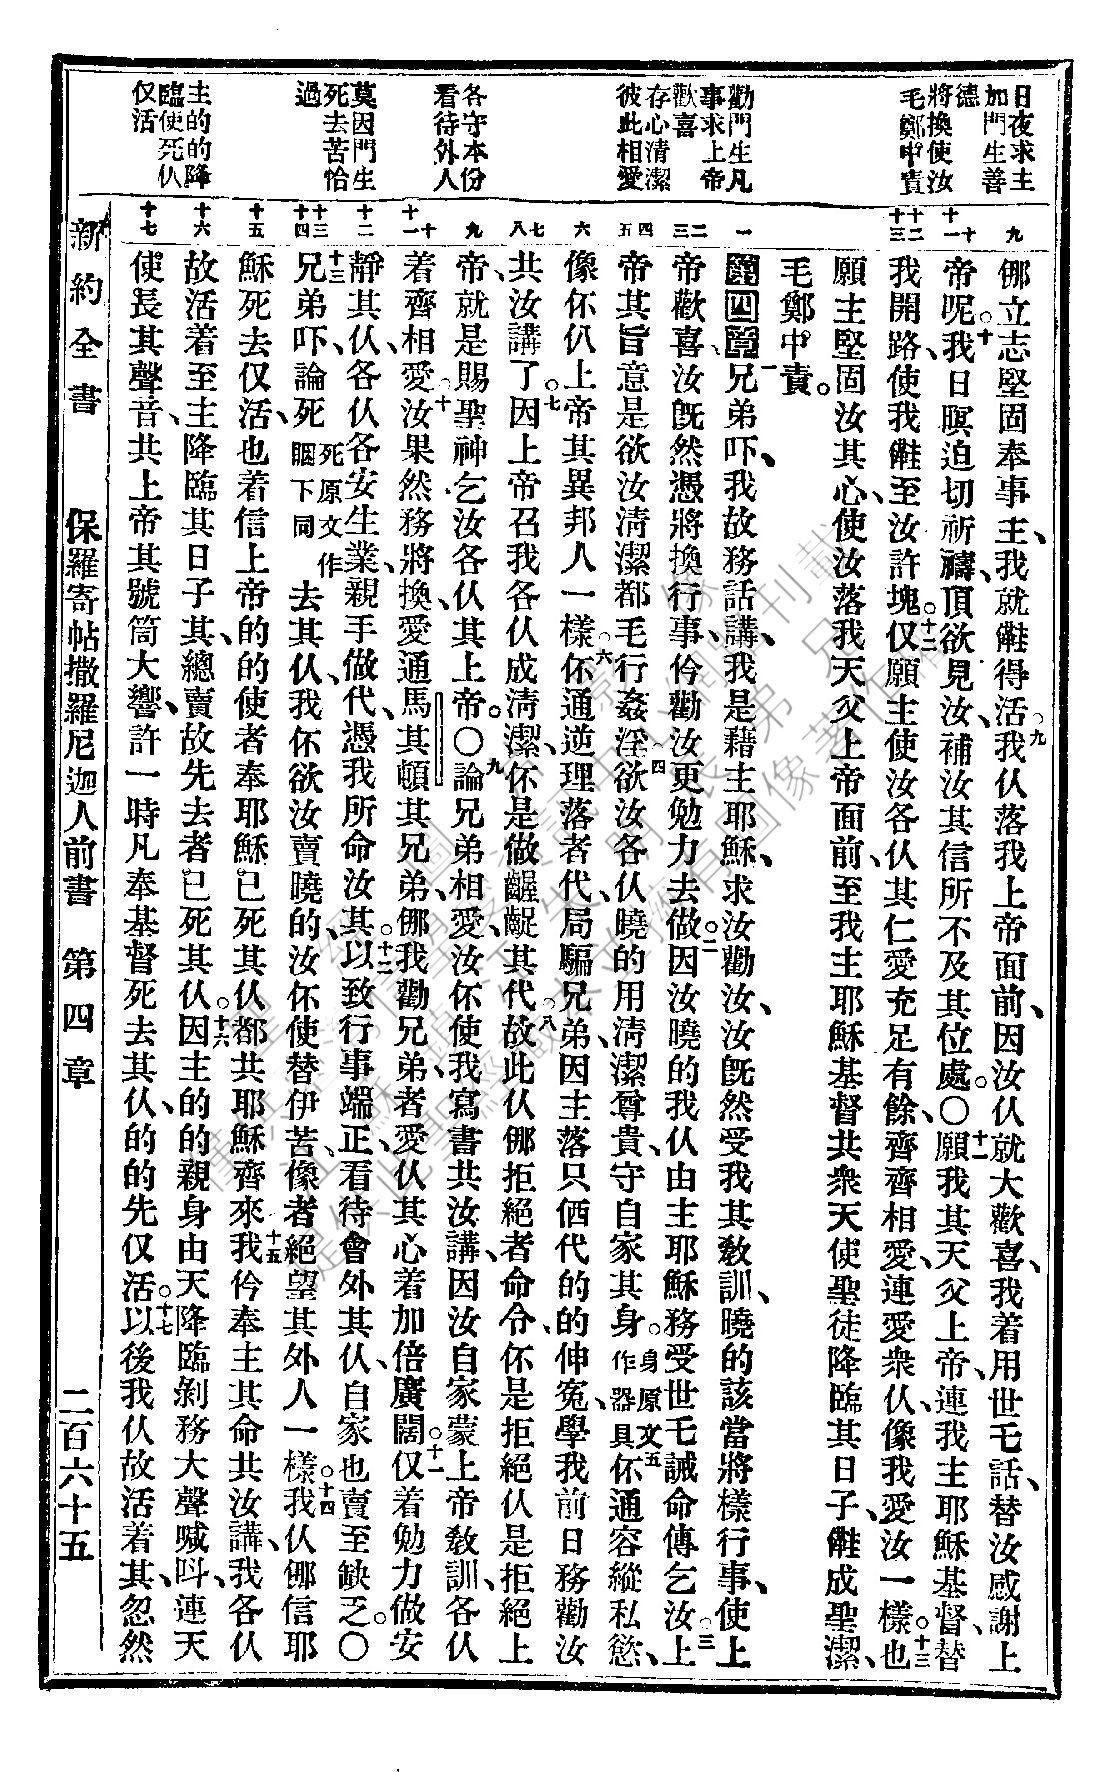 日夜求主
加門生善
德
將換使汝
毛鄭中責
勸門生凡
事求上帝
歡喜
存心清潔
彼此相愛
各守本份
看待外人
莫因門生
死去苦怡
過
主的的降
臨使死仈
仅活
九
十
十一
十二
十三
一
二
三
四
五
六
七
八
九
十
十一
十二
十三
十四
十五
十六
十七
倻立志堅固奉事主、我就𣍐得活。九我仈落我上帝面前、因汝仈就大歡喜、我着用世乇話替汝感謝上
帝呢。十我日暝迫切祈禱、頂欲見汝、補汝其信所不及其位處。〇十一願我其天父上帝、連我主耶穌基督、替
我開路、使我𣍐至汝許塊。十二仅願主使汝各仈其仁愛充足有餘、齊齊相愛、連愛衆仈、像我愛汝一樣。十三也
願主堅固汝其心、使汝落我天父上帝面前、至我主耶穌基督共衆天使聖徒降臨其日子、𣍐成聖潔、
毛鄭中責。
第四章 一兄弟吓、我故務話講、我是藉主耶穌、求汝勸汝、汝既然受我其敎訓、曉的該當將樣行事、使上
帝歡喜、汝既然憑將換行事、伶勸汝更勉力去做。二因汝曉的我仈由主耶穌務受世乇誡命傳乞汝。三上
帝其旨意是欲汝淸潔都毛行姦淫。四欲汝各仈曉的用淸潔尊貴、守自家其身。身原文作器具五伓通容縱私慾、
像伓仈上帝其異邦人一樣。六伓通逆理落者代、局騙兄弟、因主落只価代的的伸寃、學我前日務勸汝
共汝講了。七因上帝召我各仈成淸潔、伓是做齷齪其代。八故此仈倻拒絕者命令、伓是拒絕仈是拒絕上
帝、就是賜聖神乞汝各仈其上帝。〇九論兄弟相愛、汝伓使我寫書共汝講、因汝自家蒙上帝敎訓、各仈
着齊相愛。十汝果然務將換、愛通馬其頓其兄弟、倻我勸兄弟者愛仈其心着加倍廣闊。十一仅着勉力做安
靜其仈、各仈各安生業、親手做代、憑我所命汝其。十二以致行事端正、看待會外其仈、自家也賣至缺乏。〇
十三兄弟吓、論死死原文作睏下同去其仈、我伓欲汝賣曉的、汝伓使替伊苦、像者絕望其外人一樣。十四我仈倻信耶
穌死去仅活、也着信上帝的的使者奉耶穌已死其仈、都共耶穌齊來。十五我伶奉主其命共汝講、我各仈
故活着至主降臨其日子其、總賣故先去者已死其仈。十六因主的的親身由天降臨剝務大聲喊叫、連天
使長其聲音、共上帝其號筒大響、許一時凡奉基督死去其仈、的的先仅活。十七以後我仈故活着其、忽然
新約全書　保羅寄帖撒羅尼迦人前書　第四章　二百六十五